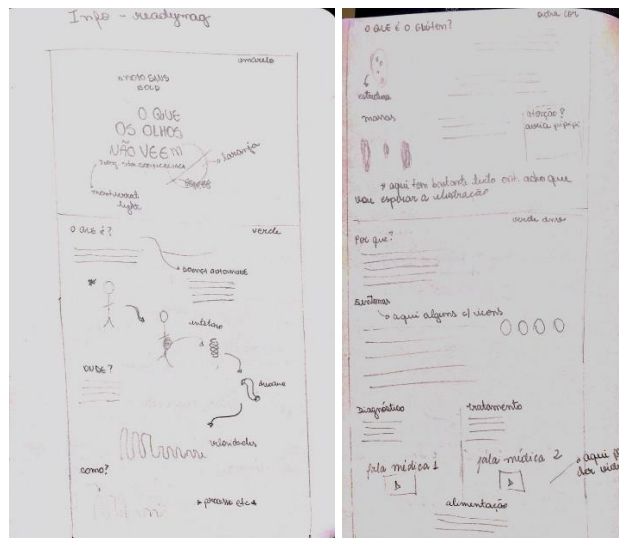 Info - readymag
amarelo
NOTO SANS
BOLD
O QUE
OS OLHOS
NÃO VEEM
laranja
montserrat
light
O QUE É?
verde
DOENÇA AUTOIMUNE
intestino
ONDE?
duodeno
vilosidades
como?
processo etc
O QUE É O GLÚTEN?
outra cor
estrutura
massas
atenção?
aveia
aqui tem bastante texto
acho que
vou espiar a ilustração
Por que?
Sintomas
aqui alguns c/ icons
Diagnóstico
tratamento
fala médica 1
fala médica 2
aqui
alimentação